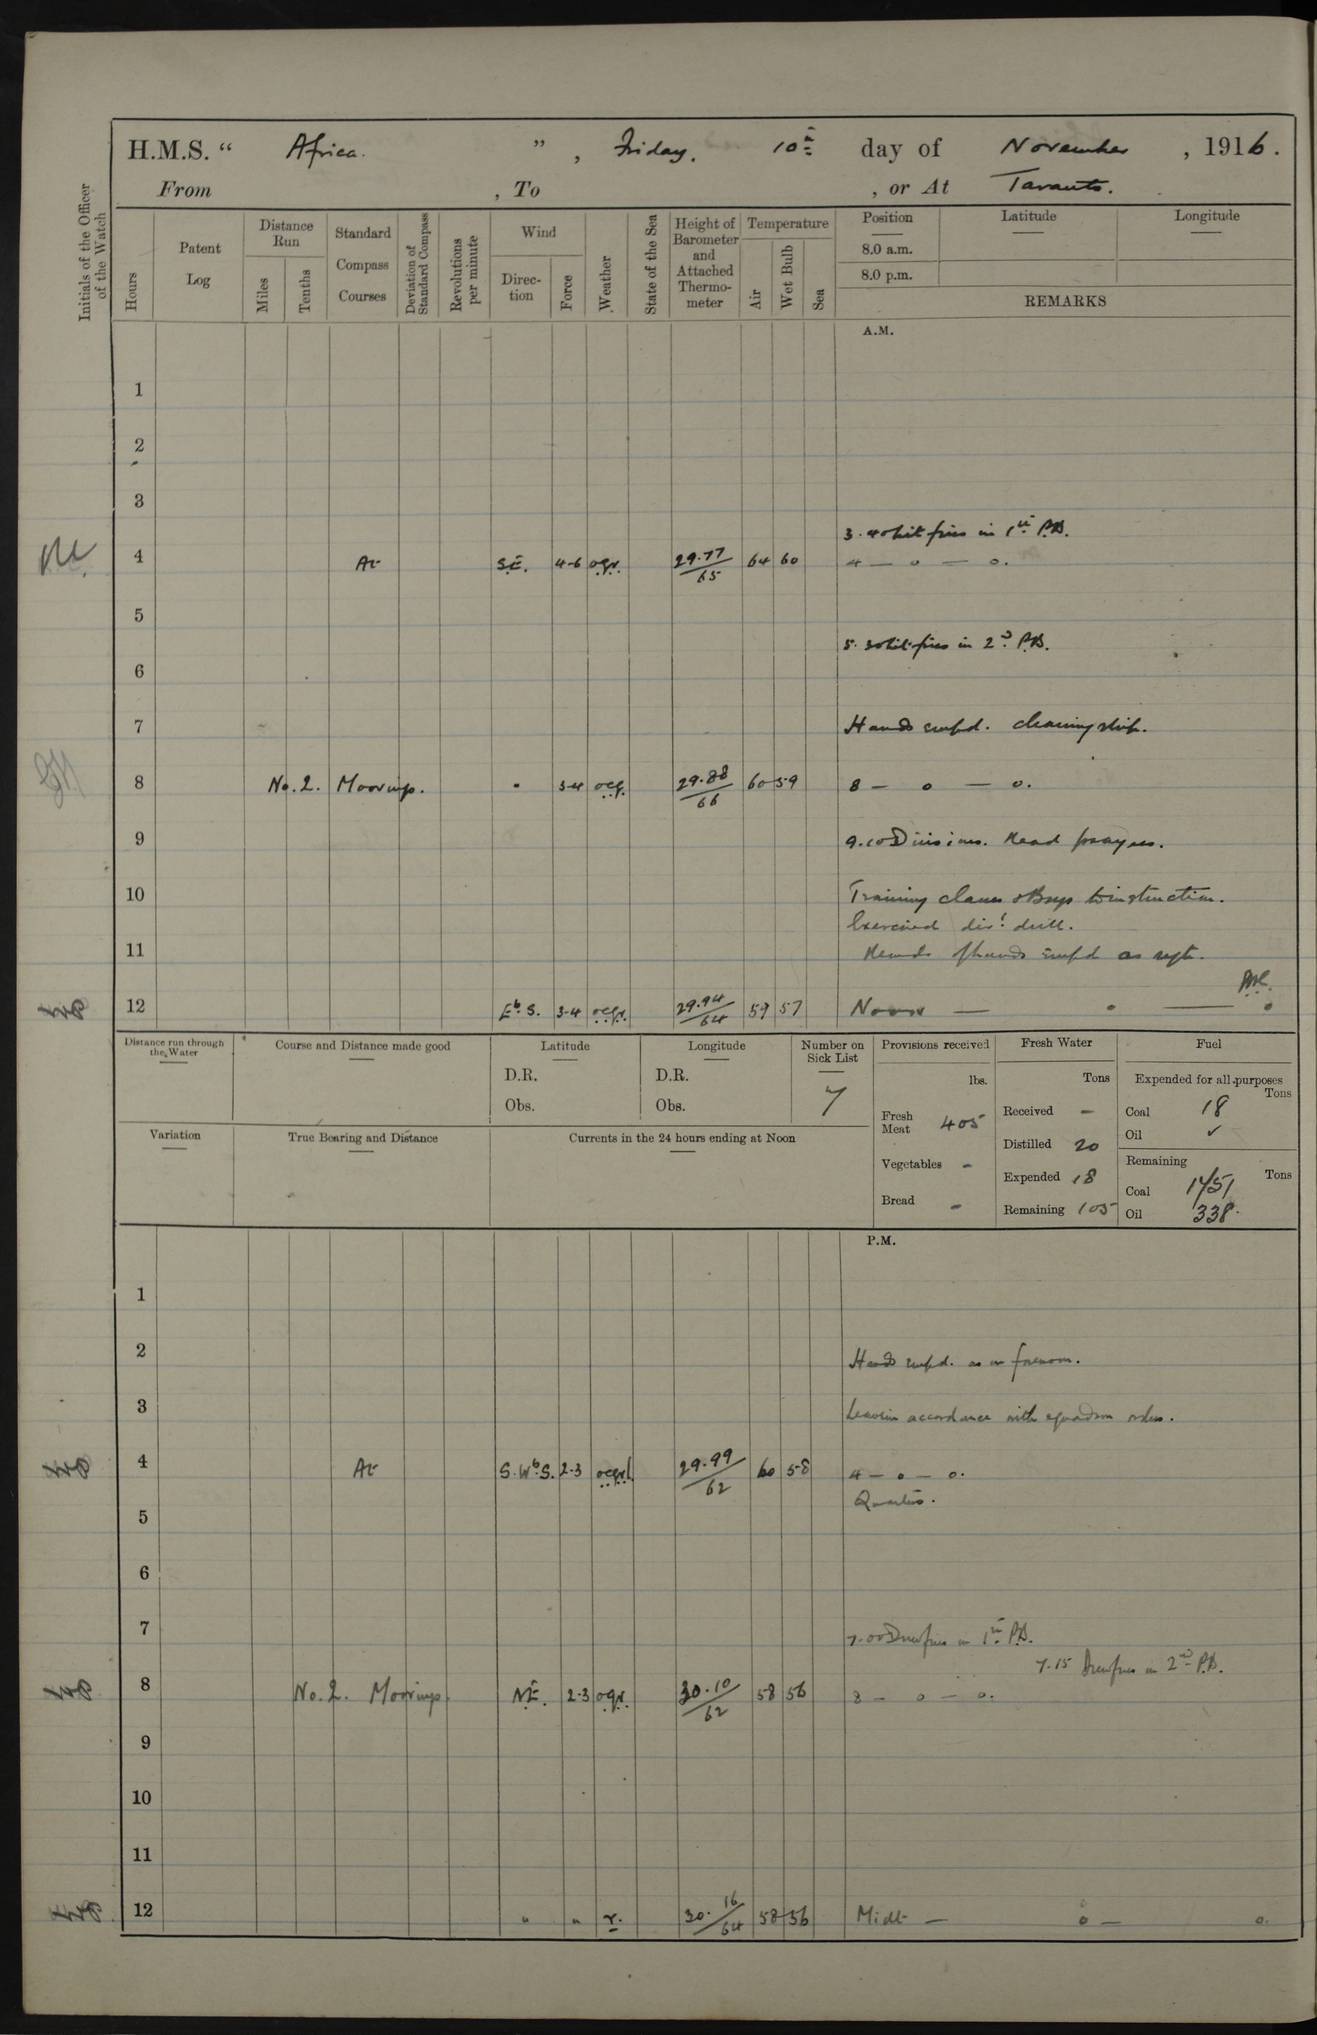 H.M.S. “ Africa. ” , Friday, 10th day of November , 1916.
From , To , or At Taranto.
Initials of the Officer of the Watch
Hours
Patent Log
Distance Run
Miles
Tenths
Standard Compass Courses
Deviation of Standard Compass
Revolutions per minute
Wind
Direction
Force
Weather
State of the Sea
Height of Barometer and Attached Thermometer
Temperature
Air
Wet Bulb
Sea
Position Latitude Longitude
8.0 a.m.
8.0 p.m.
REMARKS
A.M.
1
2
3
3.40 Lit fires in 1st P.B.
4 At S.E. 4-6 o.q.r. 29.77/65 64 60 4 — o — o.
5
5.30 Lit fires in 2nd P.B.
6
7 Hands empd. cleaning ship.
8 No. 2. Moorings. " 3-4 o.c.q. 29.88/66 60 59 8 — o — o.
9 9.10 Divisions. Read prayers.
10 Training classes & Boys to instruction.
Exercised divl drill.
11 Remdr of hands empd as reqte.
12 EbS. 3-4 o.c.q.r. 29.94/64 59 57 Noon — o — o
Distance run through the Water
Course and Distance made good
Latitude
D.R.
Obs.
Longitude
D.R.
Obs.
Number on Sick List
7
Provisions received
lbs.
Fresh Meat 405
Vegetables -
Bread -
Fresh Water
Tons
Received -
Distilled 20
Expended 18
Remaining 105
Fuel
Expended for all purposes
Tons
Coal 18
Oil ✓
Remaining
Tons
Coal 1451
Oil 338.
Variation
True Bearing and Distance
Currents in the 24 hours ending at Noon
P.M.
1
2 Hands empd. as in forenoon.
3 Leave in accordance with squadron orders.
4 At S.WbS. 2-3 29.99/62 60 58 4 — o — o.
Quarters.
5
6
7 7.00 Drew fires in 1st P.B.
7.15 Drew fires in 2nd P.B.
8 No. 2. Moorings. NE. 2-3 o.q.r. 30.10/62 58 56 8 — o — o.
9
10
11
12 " " r. 30.16/64 58 56 Midt — o — o.